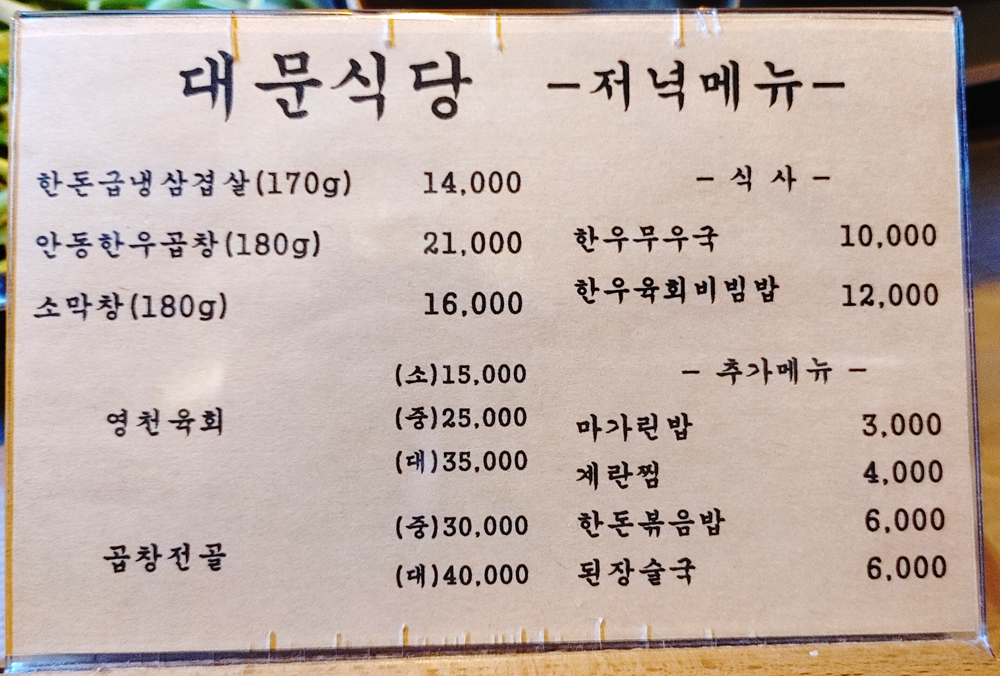 대문식당 -저녁메뉴-
한돈급냉삼겹살(170g) 14,000
안동한우곱창(180g) 21,000
소막창(180g) 16,000
영천육회
(소)15,000
(중)25,000
(대)35,000
곱창전골
(중)30,000
(대)40,000
- 식 사 -
한우무우국 10,000
한우육회비빔밥 12,000
- 추가메뉴 -
마가린밥 3,000
계란찜 4,000
한돈볶음밥 6,000
된장술국 6,000